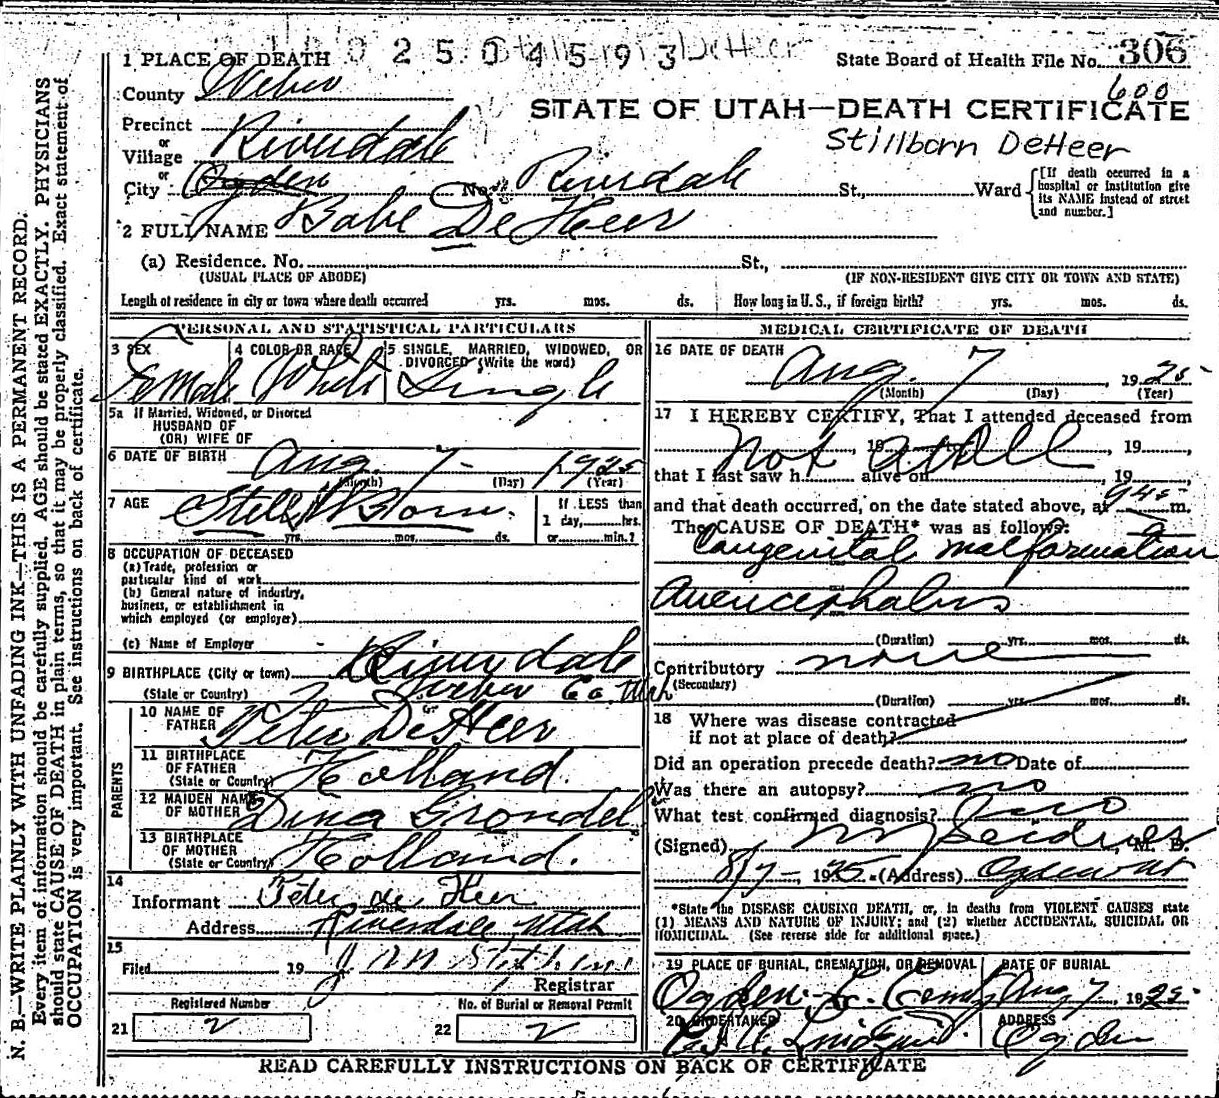 2504593 DeHeer
1 PLACE OF DEATH
State Board of Health File No. 306
600
County Weber
STATE OF UTAH—DEATH CERTIFICATE
Precinct
or
Village Riverdale
Stillborn DeHeer
or
City Ogden No. Riverdale St., Ward
[If death occurred in a
hospital or institution give
its NAME instead of street
and number.]
2 FULL NAME Babe De Heer
(a) Residence. No. St.,
(USUAL PLACE OF ABODE) (IF NON-RESIDENT GIVE CITY OR TOWN AND STATE)
Length of residence in city or town where death occurred yrs. mos. ds. How long in U. S., if foreign birth? yrs. mos. ds.
PERSONAL AND STATISTICAL PARTICULARS
3 SEX Female
4 COLOR OR RACE White
5 SINGLE, MARRIED, WIDOWED, OR
DIVORCED (Write the word)
Single
5a If Married, Widowed, or Divorced
HUSBAND OF
(OR) WIFE OF
6 DATE OF BIRTH Aug. 7 - 1925
(Month) (Day) (Year)
7 AGE Still Born.
yrs. mos. ds.
If LESS than
1 day, hrs.
or min.?
8 OCCUPATION OF DECEASED
(a) Trade, profession or
particular kind of work
(b) General nature of industry,
business, or establishment in
which employed (or employer)
(c) Name of Employer
9 BIRTHPLACE (City or town) Riverdale
(State or Country) Weber Co. Utah
PARENTS
10 NAME OF
FATHER Peter De Heer
11 BIRTHPLACE
OF FATHER
(State or Country) Holland.
12 MAIDEN NAME
OF MOTHER Dina Grondel
13 BIRTHPLACE
OF MOTHER
(State or Country) Holland.
14
Informant Peter de Heer
Address Riverdale Utah
15
Filed 19
Registrar
Registered Number
21 2
No. of Burial or Removal Permit
22 2
MEDICAL CERTIFICATE OF DEATH
16 DATE OF DEATH
Aug. 7, 1925
(Month) (Day) (Year)
17 I HEREBY CERTIFY, That I attended deceased from
Not at all, 19
that I last saw h alive on, 19
and that death occurred, on the date stated above, at 945 a m.
The CAUSE OF DEATH* was as follows:
Congenital malformation
Anencephalus
(Duration) yrs. mos. ds.
Contributory none
(Secondary)
(Duration) yrs. mos. ds.
18 Where was disease contracted
if not at place of death?
Did an operation precede death? no Date of
Was there an autopsy? no
What test confirmed diagnosis?
(Signed), M. D.
8/7 - 1925. (Address) Ogden Ut
*State the DISEASE CAUSING DEATH, or, in deaths from VIOLENT CAUSES state
(1) MEANS AND NATURE OF INJURY; and (2) whether ACCIDENTAL, SUICIDAL OR
HOMICIDAL. (See reverse side for additional space.)
19 PLACE OF BURIAL, CREMATION, OR REMOVAL DATE OF BURIAL
Ogden Aug 7 1925
20 UNDERTAKER ADDRESS
Ogden
READ CAREFULLY INSTRUCTIONS ON BACK OF CERTIFICATE
N. B.—WRITE PLAINLY WITH UNFADING INK—THIS IS A PERMANENT RECORD.
Every item of information should be carefully supplied. AGE should be stated EXACTLY. PHYSICIANS
should state CAUSE OF DEATH in plain terms, so that it may be properly classified. Exact statement of
OCCUPATION is very important. See instructions on back of certificate.